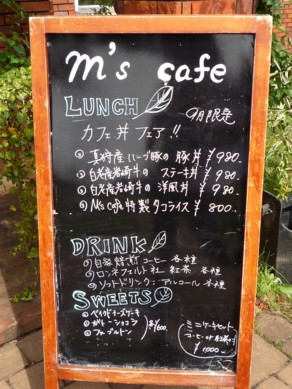 m's cafe
LUNCH
9月限定
カフェ丼フェア!!
産ハーブ豚の豚丼 ¥980.
産 牛の ステーキ丼 ¥980.
産 牛の 洋風丼 ¥980.
M's Cafe 特製 タコライス ¥800.
DRINK
自家焙煎コーヒー 各種
ロンネフェルト社 紅茶 各種
ソフトドリンク・アルコール 各種
SWEETS
ベイクドチーズケーキ
ガトーショコラ
ミニケーキセット
コーヒー or 紅茶付
¥1000